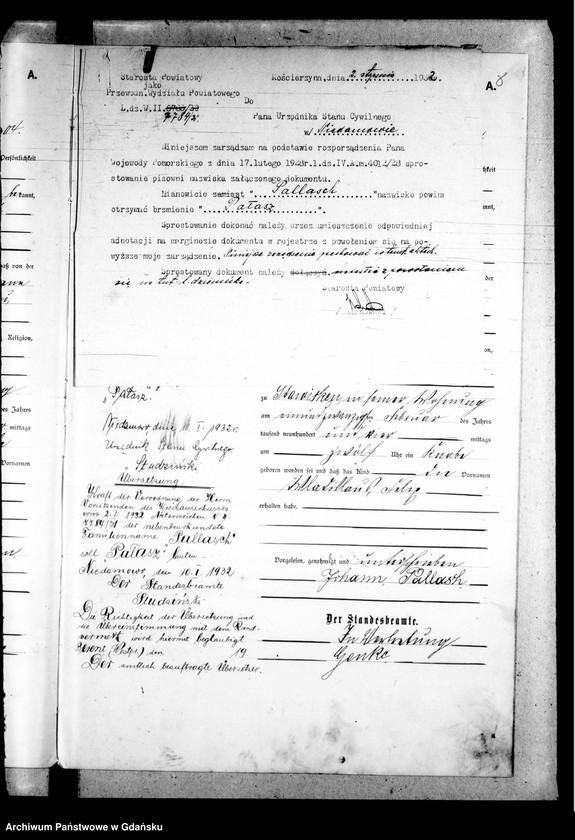 A.
Starosta Powiatowy
jako
Przewodn.Wydziału Powiatowego
L.dz.W.II.
7784/31
Kościerzyna, dnia 2. stycznia 1932
A.
Do
Pana Urzędnika Stanu Cywilnego
w/ Niedamowie
Niniejszem zarządzam na podstawie rozporządzenia Pana
Wojewody Pomorskiego z dnia 17.lutego 1928r.l.ds.IV.A.m.4012/28 spro-
stowanie pisowni nazwiska załączonego dokumentu.
Mianowicie zamiast "Pallasch" nazwisko powin
otrzymać brzmienie "Pałasz".
Sprostowanie dokonać należy przez umieszczenie odpowiedniej
adnotacji na marginesie dokumentu w rejestrze z powołaniem się na po-
wyższe moje zarządzenie. Niniejsze zarządzenie pozostawić
Sprostowany dokument należy zwrócić z powołaniem
się na tut. l. dziennika.
Starosta Powiatowy
Persönlichkeit
kannt,
Religion,
des Jahres
mittags
Vornamen
"Pałasz".
Niedamowo dnia 10. I. 1932 r.
Urzędnik Stanu Cywilnego
Studziński
Übersetzung
Kraft der Verordnung des Herrn
Vorsitzenden des Kreisausschusses
vom 2./1. 1932 Aktenzeichen K. A.
7784/31 der nebenbeurkundete
Familienname "Pallasch"
soll "Pałasz" lauten.
Niedamowo, den 10.I.1932
Der Standesbeamte
Studziński
Die Richtigkeit der Übersetzung und
die Übereinstimmung mit dem Rand-
vermerk wird hiermit beglaubigt
Berent (Westpr.) den 19
Der amtlich beauftragte Übersetzer.
zu Stawisken, in seiner Wohnung
am einundzwanzigsten Februar des Jahres
tausend neunhundert und vier mittags
um zwölf Uhr ein Knabe
geboren worden sei und daß das Kind die Vornamen
erhalten habe.
Vorgelesen, genehmigt und unterschrieben
Johann Pallasch
Der Standesbeamte.
In Vertretung
Genke
Archiwum Państwowe w Gdańsku